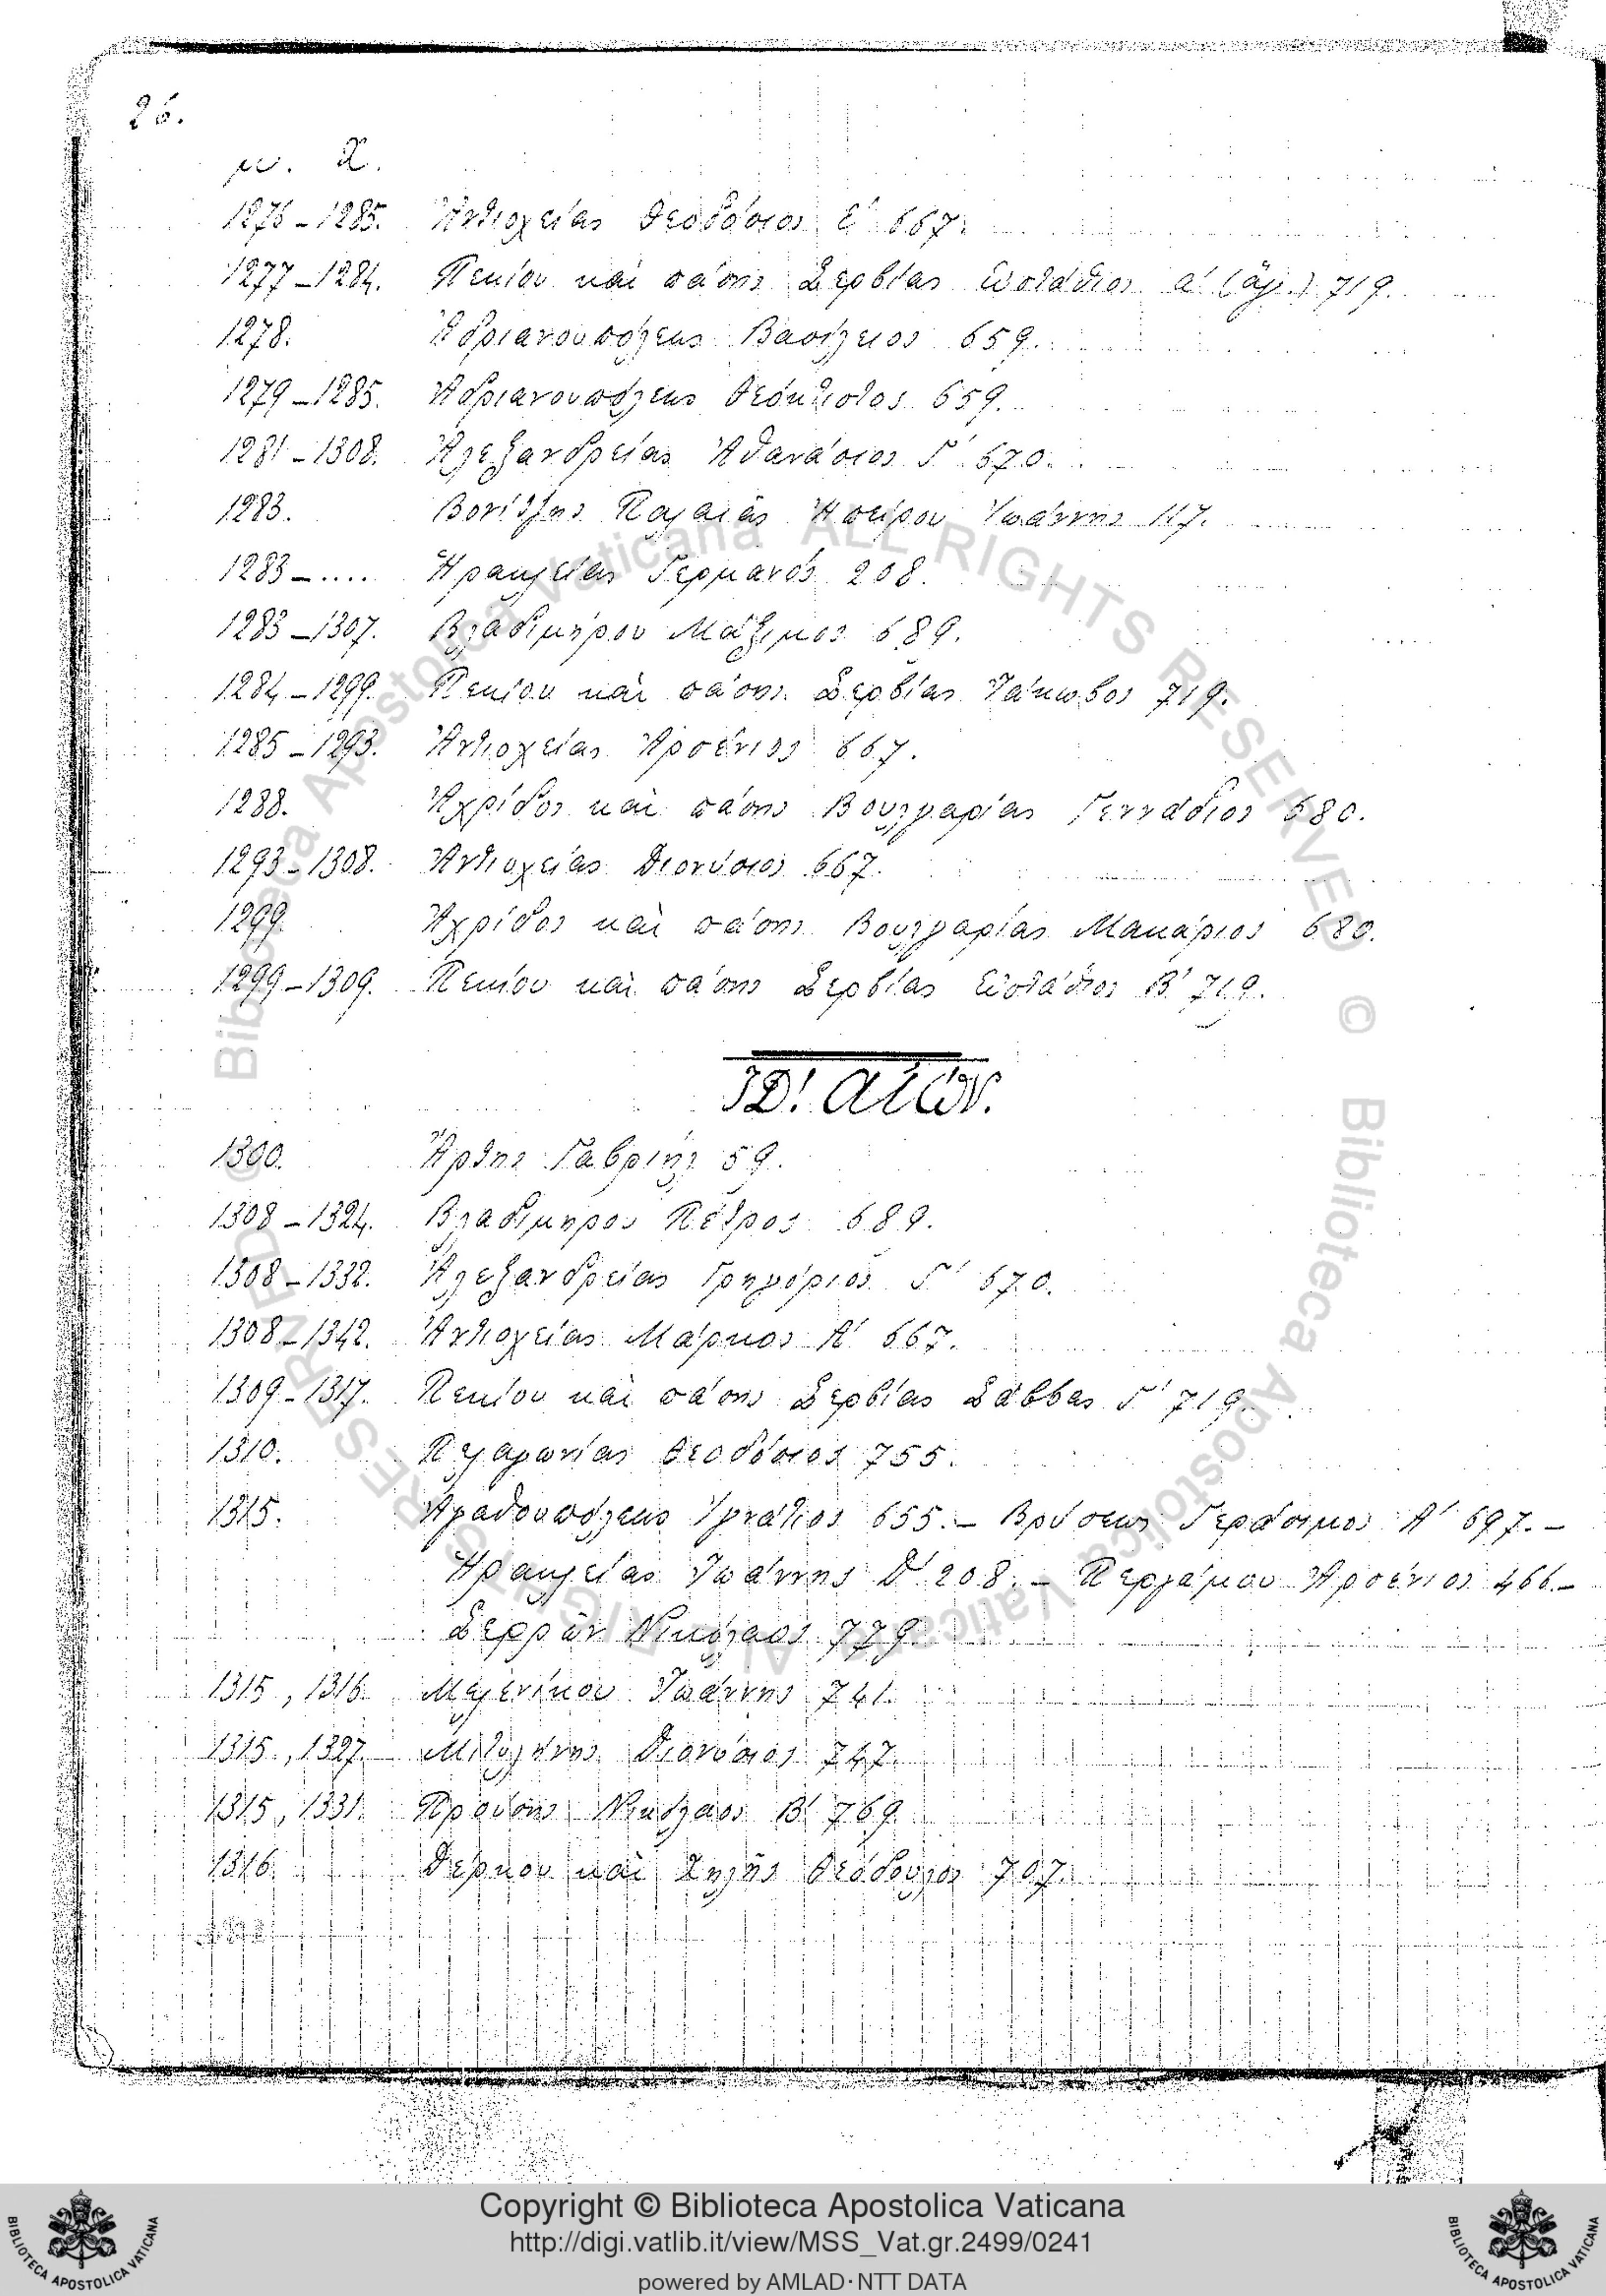 26.
μ. Χ.
1276-1285. Ἀντιοχείας Θεοδόσιος Ε' 667.
1277-1284. Πεκίου καὶ πάσης Σερβίας Εὐστάθιος Α' (ἅγ.) 719.
1278. Ἀδριανουπόλεως Βασίλειος 659.
1279-1285. Ἀδριανουπόλεως Θεόκτιστος 659.
1281-1308. Ἀλεξανδρείας Ἀθανάσιος Γ' 670.
1283. Βονίτζης Παλαιᾶς Ἠπείρου Ἰωάννης 117.
1283-..... Ἡρακλείας Γερμανός 208.
1283-1307. Βλαδιμήρου Μάξιμος 689.
1284-1299. Πεκίου καὶ πάσης Σερβίας Ἰάκωβος 719.
1285-1293. Ἀντιοχείας Ἀρσένιος 667.
1288. Ἀχρίδος καὶ πάσης Βουλγαρίας Γεννάδιος 680.
1293-1308. Ἀντιοχείας Διονύσιος 667.
1299. Ἀχρίδος καὶ πάσης Βουλγαρίας Μακάριος 680.
1299-1309. Πεκίου καὶ πάσης Σερβίας Εὐστάθιος Β' 719.
ΙΔ'. αἰών.
1300. Ἄρτης Γαβριήλ 59.
1308-1324. Βλαδιμήρου Πέτρος 689.
1308-1332. Ἀλεξανδρείας Γρηγόριος Γ' 670.
1308-1342. Ἀντιοχείας Μάρκος Α' 667.
1309-1317. Πεκίου καὶ πάσης Σερβίας Σάββας Γ' 719.
1310. Πελαγωνίας Θεοδόσιος 755.
1315. Ἀγαθουπόλεως Ἰγνάτιος 655.- Βρύσεως Γεράσιμος Α' 697.-
Ἡρακλείας Ἰωάννης Δ' 208.- Περγάμου Ἀρσένιος 466.-
Σερρῶν Νικόλαος 779.
1315, 1316. Μελενίκου Ἰωάννης 741.
1315, 1327. Μιτυλήνης Διονύσιος 747.
1315, 1331. Προύσης Νικόλαος Β' 769.
1316. Δέρκου καὶ Χηλῆς Θεόδουλος 707.
© Biblioteca Apostolica Vaticana ALL RIGHTS RESERVED © Biblioteca Apostolica Vaticana ALL RIGHTS RESERVED
Copyright © Biblioteca Apostolica Vaticana
http://digi.vatlib.it/view/MSS_Vat.gr.2499/0241
powered by AMLAD·NTT DATA
BIBLIOTECA APOSTOLICA VATICANA
BIBLIOTECA APOSTOLICA VATICANA